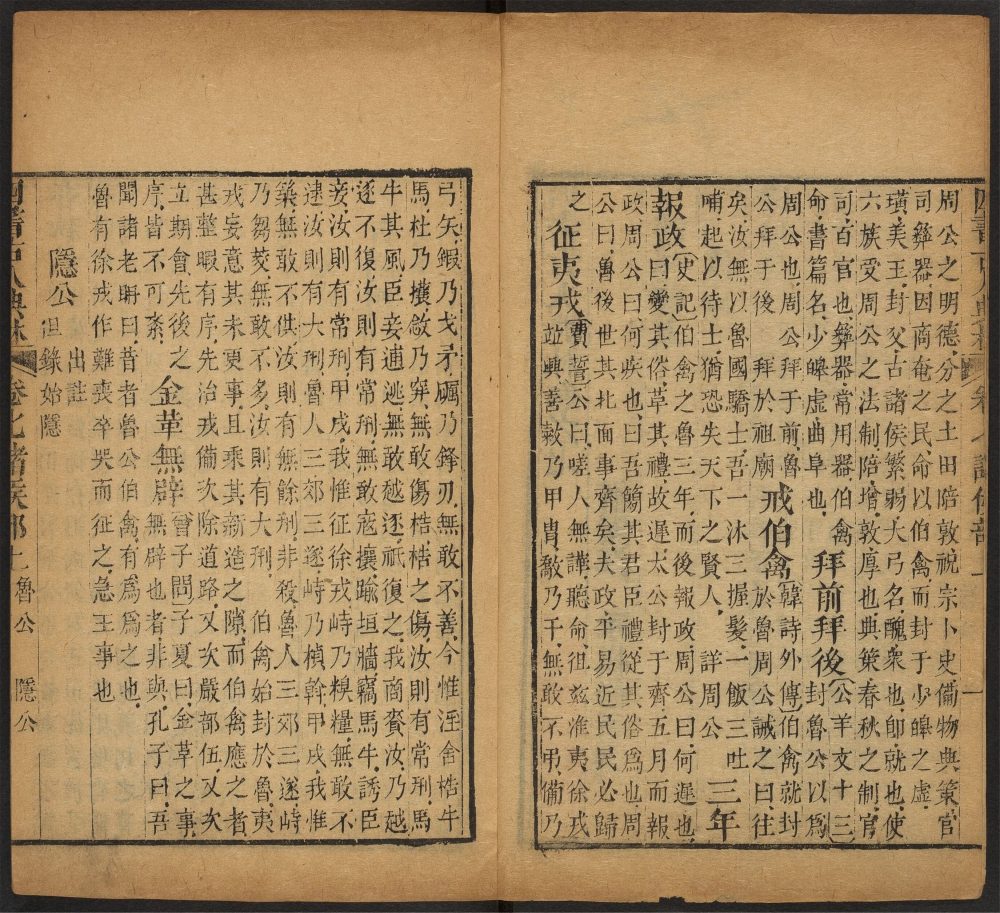 周公之明德分之土田陪敦祝宗卜史備物典策官
司彝器因商奄之民命以伯禽而封于少皥之虛
璜美玉封父古諸侯繁弱大弓名醜衆也卽就也使
六族受周公之法制陪增敦厚也典策春秋之制官
司百官也彝器常用器伯禽
命書篇名少皥虛曲阜也 拜前拜後公羊文十三封魯公以爲
周公也周公拜于前魯
公拜于後 拜於祖廟 戒伯禽韓詩外傳伯禽就封於魯周公誡之曰往
矣汝無以魯國驕士吾一沐三握髮一飯三吐
哺起以待士猶恐失天下之賢人 詳周公 三年
報政史記伯禽之魯三年而後報政周公曰何遲也
曰變其俗革其禮故遲太公封于齊五月而報
政周公曰何疾也曰吾簡其君臣禮從其俗爲也周
公曰魯後世其北面事齊矣夫政平易近民民必歸
之 征夷戎費誓公曰嗟人無譁聽命徂兹淮夷徐戎
並興善敹乃甲冑敿乃干無敢不弔備乃
弓矢鍜乃戈矛礪乃鋒刃無敢不善今惟淫舍牿牛
馬杜乃擭敜乃穽無敢傷牿牿之傷汝則有常刑馬
牛其風臣妾逋逃無敢越逐祇復之我商賚汝乃越
逐不復汝則有常刑無敢宼攘踰垣牆竊馬牛誘臣
妾汝則有常刑甲戌我惟征徐戎峙乃糗糧無敢不
逮汝則有大刑魯人三郊三遂峙乃楨榦甲戌我惟
築無敢不供汝則有無餘刑非殺魯人三郊三遂峙
乃芻茭無敢不多汝則有大刑 伯禽始封於魯夷
戎妄意其未更事且乘其新造之隙而伯禽應之者
甚整暇有序先治戎備次除道路又次嚴部伍又次
立期會先後之
序皆不可紊 金革無辟曾子問子夏曰金革之事
無辟也者非與孔子曰吾
聞諸老聃曰昔者魯公伯禽有爲爲之也
魯有徐戎作難喪卒哭而征之急王事也
隱公出註
但錄始隱
卷七諸侯部上魯公 隱公